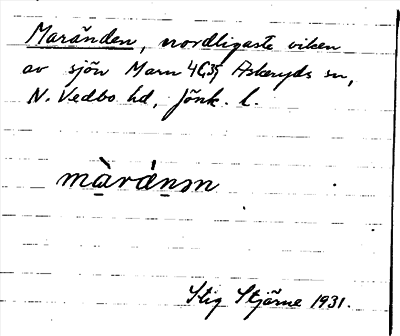 Maränden, nordligaste viken
av sjön Marn Askeryds sn,
N. Vedbo hd, Jönk. l.
Stig Stjärne 1931.